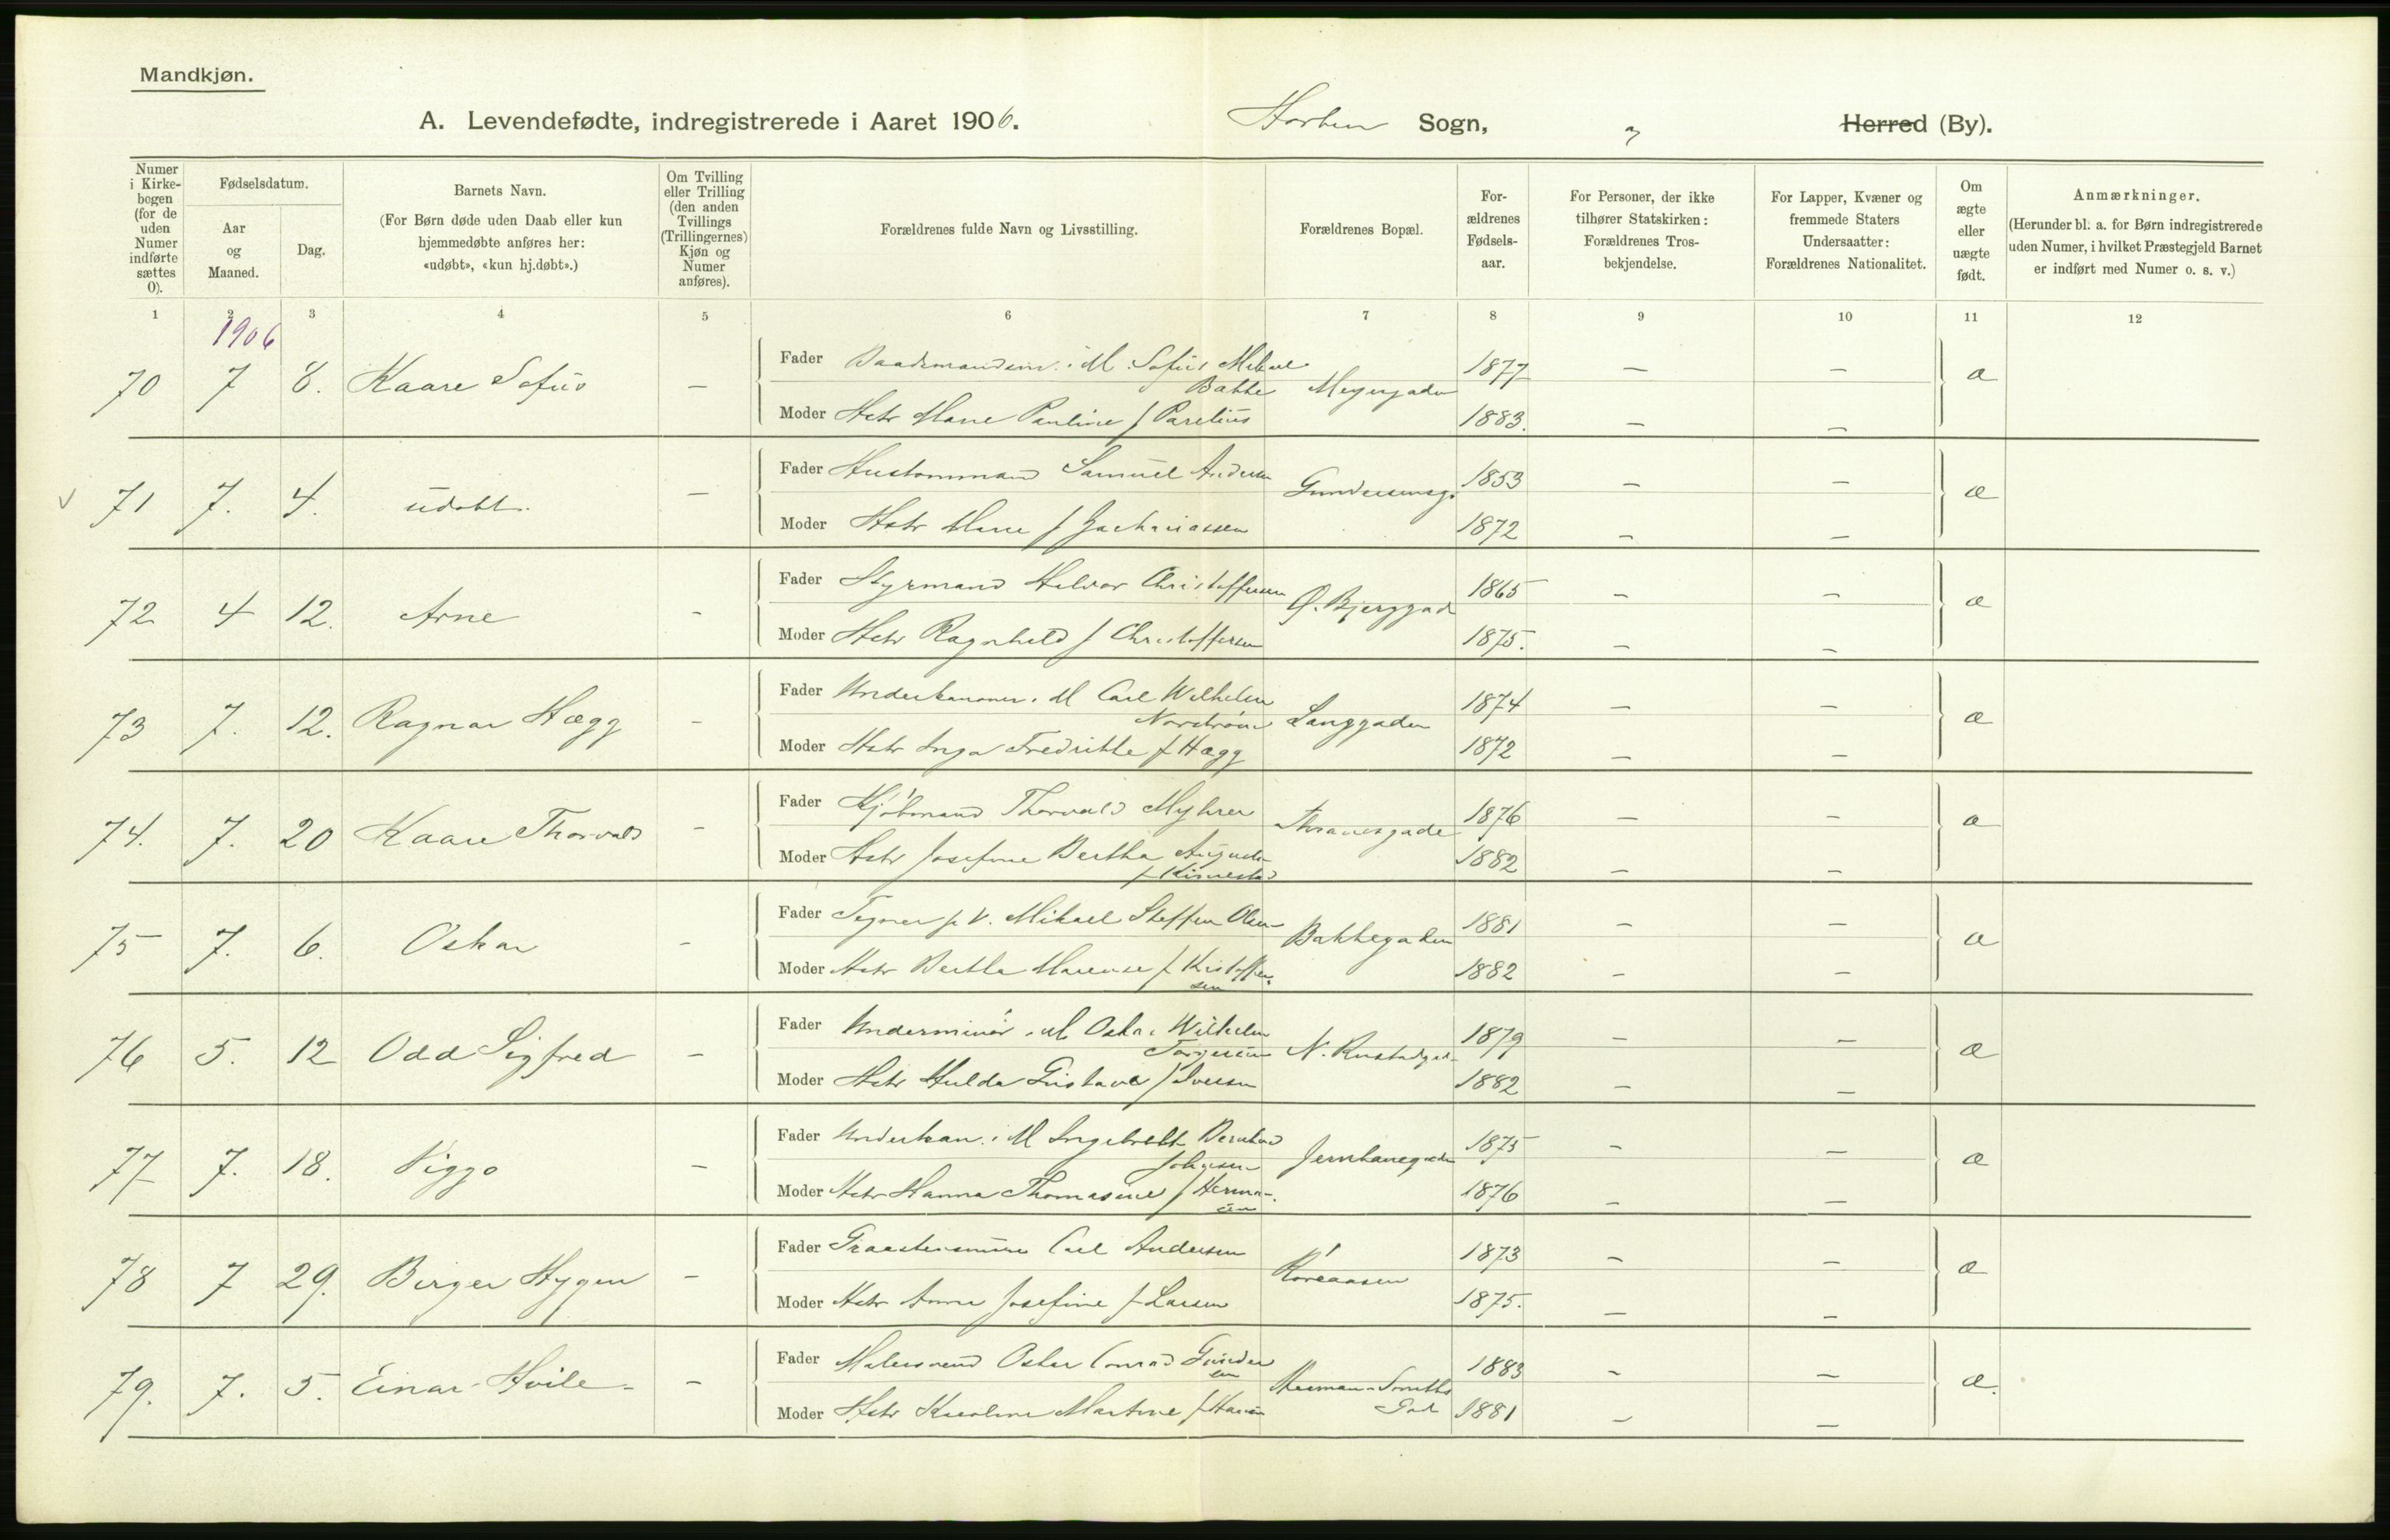 Mandkjøn.
A. Levendefødte, indregistrerede i Aaret 1906. Horten Sogn, Herred (By).
Numer i Kirkebogen (for de uden Numer indførte sættes 0).
Fødselsdatum.
Aar og Maaned.
Dag.
Barnets Navn.
(For Børn døde uden Daab eller kun hjemmedøbte anføres her: «udøbt», «kun hj.døbt».)
Om Tvilling eller Trilling (den anden Tvillings (Trillingernes) Kjøn og Numer anføres).
Forældrenes fulde Navn og Livsstilling.
Forældrenes Bopæl.
Forældrenes Fødselsaar.
For Personer, der ikke tilhører Statskirken: Forældrenes Trosbekjendelse.
For Lapper, Kvæner og fremmede Staters Undersaatter: Forældrenes Nationalitet.
Om ægte eller uægte født.
Anmærkninger.
(Herunder bl. a. for Børn indregistrerede uden Numer, i hvilket Præstegjeld Barnet er indført med Numer o. s. v.)
1 2 3 4 5 6 7 8 9 10 11 12
1906
70 7 8. Kaare Sofus — Fader i M. Sofus Mikael Bakke 1877 — — æ
Moder Hstr Marie Pauline f Parelius 1883. — —
v 71 7. 4. udøbt. — Fader Samuel Andersen Gundersensg. 1853 — — æ
Moder Hstr f Zachariassen 1872 — —
72 4 12. Arne - Fader Styrmand Halvor Christoffersen Ø. Bjerggad 1865 — — æ
Moder Hstr Ragnhild f Christoffersen 1875. — —
73 7. 12. Ragnar Hægg - Fader Underkanoner i M Carl Wilhelm Norstrøm Langgaden 1874 — — æ
Moder Hstr Inga Fredrikke f Hægg 1872 — —
74. 7. 20 Kaare Thorvald - Fader Kjøbmand Thorvald Myhrer Thranesgade 1876 — — æ
Moder Hstr Josefine Bertha Augusta f 1882 — —
75 7. 6. Oskar - Fader Mikael Steffen Olsen Bakkegaden 1881 — — æ
Moder Hstr Bertha f Kristoffersen 1882 — —
76 5. 12 Odd Sigfred — Fader Underminør i M Oskar Wilhelm Torgersen N. 1879 — — æ
Moder Hstr Hulda Gustava f Iversen 1882 — —
77 7. 18. Viggo — Fader Underkan. i M Ingebrekt Bernhard Johnsen Jernbanegaden 1875 — — æ
Moder Hstr Hanna Thomasine f Hermansen 1876 — —
78 7 29. Birger Hygen - Fader Carl Andersen Røreaasen 1873 — — æ
Moder Hstr Anna Josefine f Larsen 1875. — —
79. 7. 5. Einar Hvile - - Fader Malersvend Oskar Conrad Gundersen Herman Smiths Gad 1883 — — æ.
Moder Hstr Karoline Martine f Hansen 1881 — —